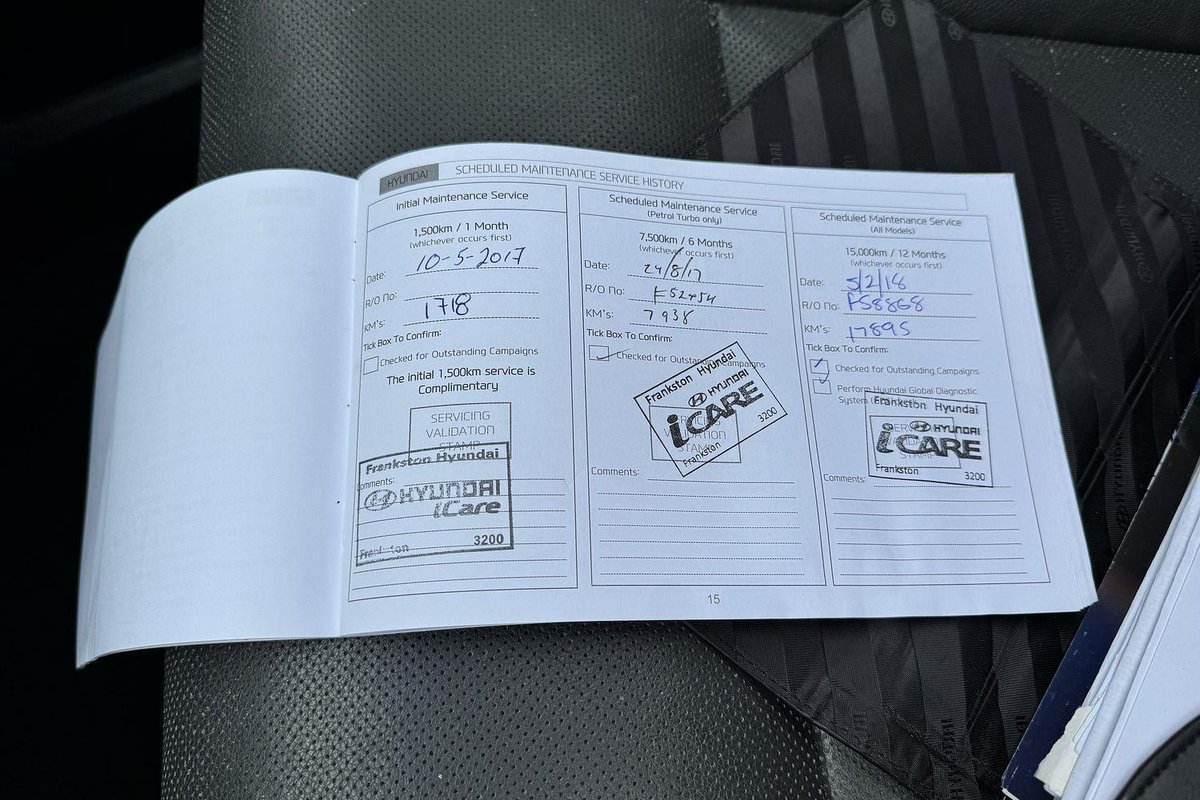 HYUNDAI
SCHEDULED MAINTENANCE SERVICE HISTORY
Initial Maintenance Service
1,500km / 1 Month
(whichever occurs first)
Date: 10-5-2017
R/O No:
KM's: 1718
Tick Box To Confirm:
Checked for Outstanding Campaigns
The initial 1,500km service is
Complimentary
SERVICING
VALIDATION
STAMP
Frankston Hyundai
Comments:
HYUNDAI
iCare
Frankston 3200
Scheduled Maintenance Service
(Petrol Turbo only)
7,500km / 6 Months
(whichever occurs first)
Date: 24/8/17
R/O No:
KM's: 7938
Tick Box To Confirm:
Checked for Outstanding Campaigns
Frankston Hyundai
HYUNDAI
iCARE
SERVICING
VALIDATION
STAMP
Frankston 3200
Comments:
Scheduled Maintenance Service
(All Models)
15,000km / 12 Months
(whichever occurs first)
Date: 5/2/18
R/O No: FS8868
KM's: 17895
Tick Box To Confirm:
Checked for Outstanding Campaigns
Perform Hyundai Global Diagnostic
System
Frankston Hyundai
HYUNDAI
iCARE
Frankston 3200
Comments:
15